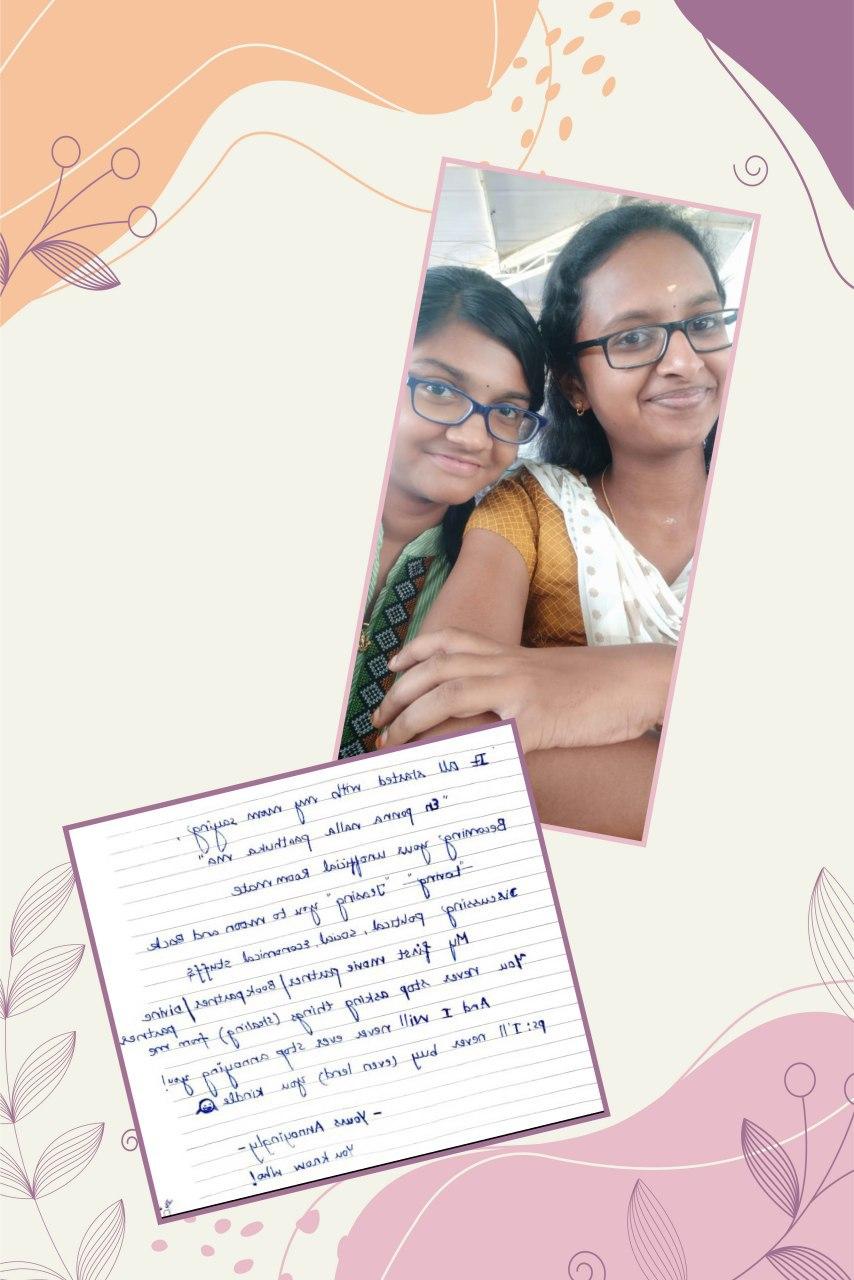 It all started with my mom saying,
"En ponna nalla paathuka ma"
Becoming your unofficial Roommate
"Loving" "Teasing" you to moon and Back
Discussing political, social, economical stuffs
My first movie partner/Book partner/Divine partner
You never stop asking things (stealing) from me
And I will never ever stop annoying you!
ps: I'll never buy (even lend) you kindle
- Yours Annoyingly -
You know who!